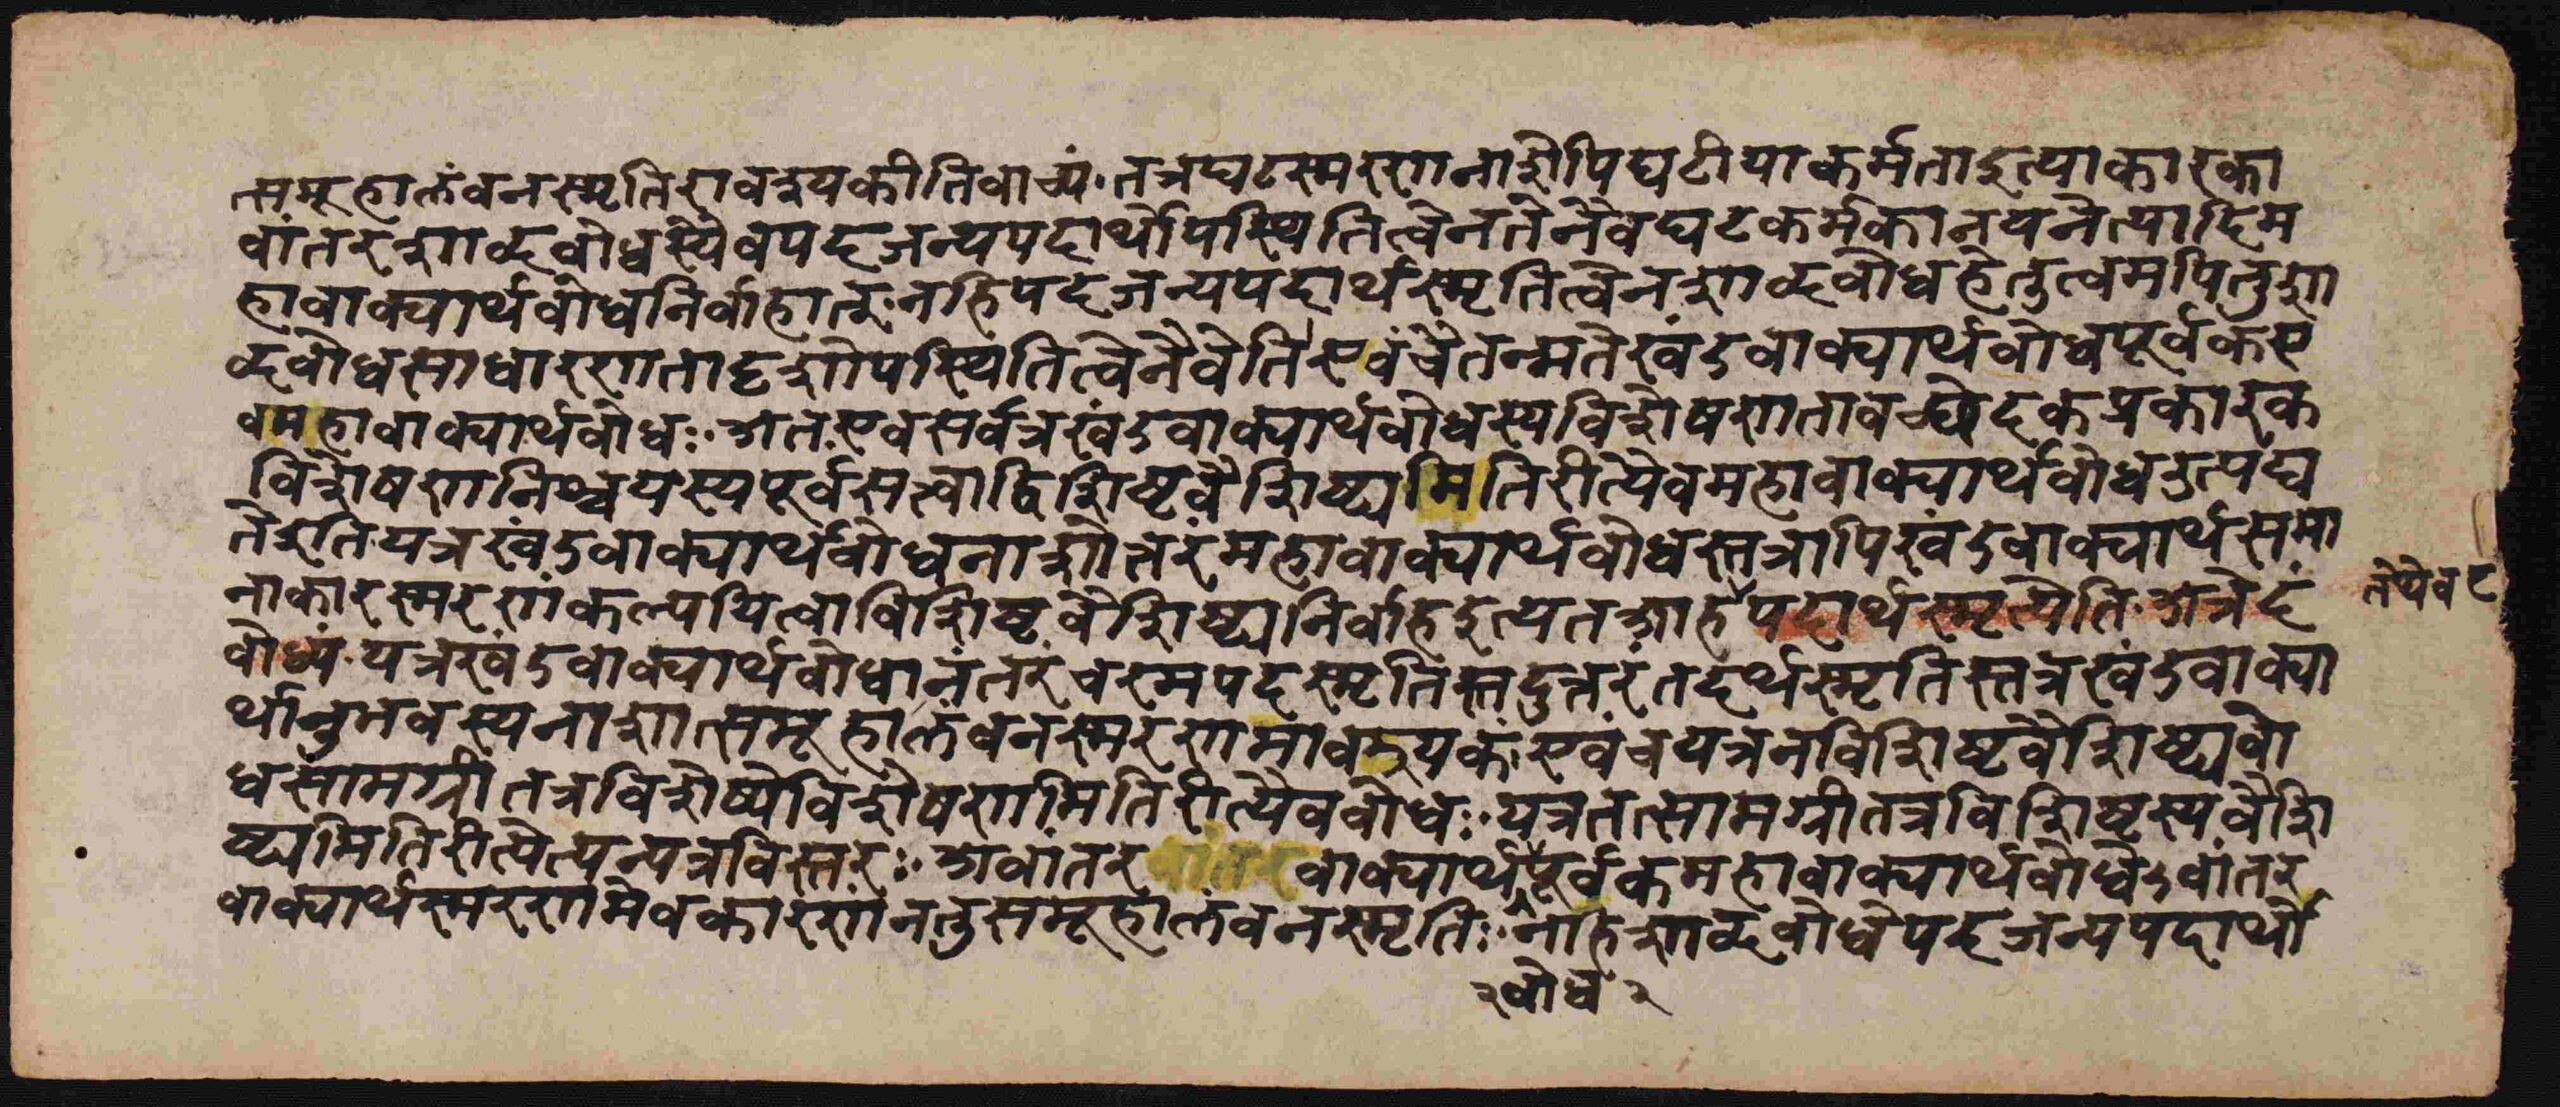 त्समूहालंवनस्मृतिरावश्यकीतिवाच्यं॰तत्रघटस्मरणनाशेपिघटीयाकर्मताइत्याकारका
वांतरशाव्दवोधस्यैवपदजन्यपदार्थोपस्थितित्वेनतेनैवघटकर्मकानयनेत्यादिम
हावाक्यार्थवोधनिर्वाहात्॰नहिपदजन्यपदार्थस्मृतित्वेनशाव्दवोधहेतुत्वमपितुशा
व्दवोधसाधारणतादृशोपस्थितित्वेनैवेति॰एवंचैतन्मतेखंडवाक्यार्थवोधपूर्वकए
वमहावाक्यार्थवोधः॰अतएवसर्वत्रखंडवाक्यार्थवोधस्यविशेषणतावच्छेदकप्रकारक
विशेषणनिश्चयस्यपूर्वसत्वाद्विशिष्टवैशिष्ट्यमितिरीत्यैवमहावाक्यार्थवोधउत्पद्य
तेइति॰यत्रखंडवाक्यार्थवोधनाशोत्तरंमहावाक्यार्थवोधस्तत्रापिखंडवाक्यार्थसमा
नाकारस्मरणंकल्पयित्वाविशिष्टवैशिष्ट्यनिर्वाहइत्यतआहपदार्थस्मृत्येति॰अत्रेदं
तेयेव८
वोध्यं॰यत्रखंडवाक्यार्थवोधानंतरंचरमपदस्मृतिस्तदुत्तरंतदर्थस्मृतिस्तत्रखंडवाक्या
र्थानुभवस्यनाशात्समूहालंवनस्मरणमावश्यकं॰एवंचयत्रनविशिष्टवैशिष्ट्यवो
धसामग्रीतत्रविशेष्येविशेषणमितिरीत्यैववोधः॰यत्रतत्सामग्रीतत्रविशिष्टस्यवैशि
ष्ट्यमितिरीत्येत्यन्यत्रविस्तरः॰अवांतरवाक्यार्थपूर्वकमहावाक्यार्थवोधेऽवांतर
वाक्यार्थस्मरणमेवकारणंनतुसमूहालंवनस्मृतिः॰नहिशाव्दवोधेपदजन्यपदार्थो
२वोध२